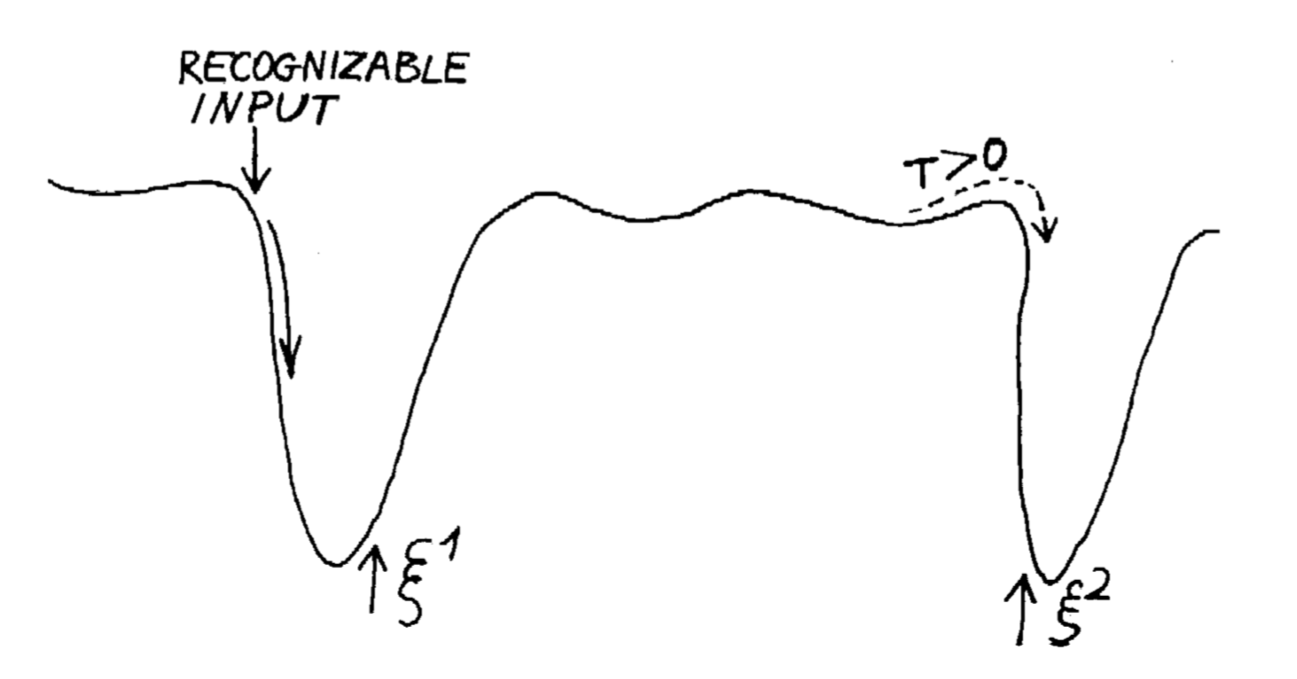 RECOGNIZABLE
INPUT
T>0
ξ¹
ξ²